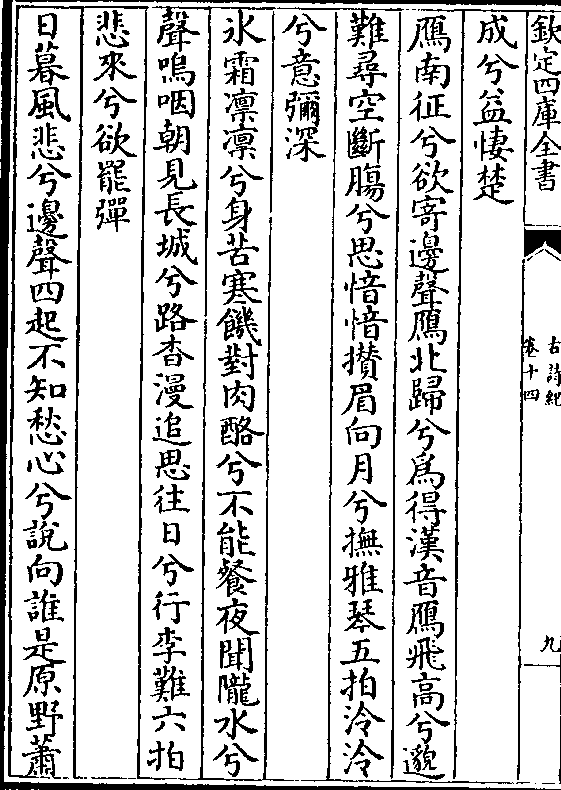 欽定四庫全書
古詩紀
卷十四
九
成兮益悽楚
鴈南征兮欲寄邊聲鴈北歸兮爲得漢音鴈飛高兮邈
難尋空斷膓兮思愔愔攅眉向月兮撫雅琴五拍泠泠
兮意彌深
氷霜凛凛兮身苦寒饑對肉酪兮不能餐夜聞隴水兮
聲嗚咽朝見長城兮路杳漫追思往日兮行李難六拍
悲來兮欲罷彈
日暮風悲兮邊聲四起不知愁心兮說向誰是原野蕭